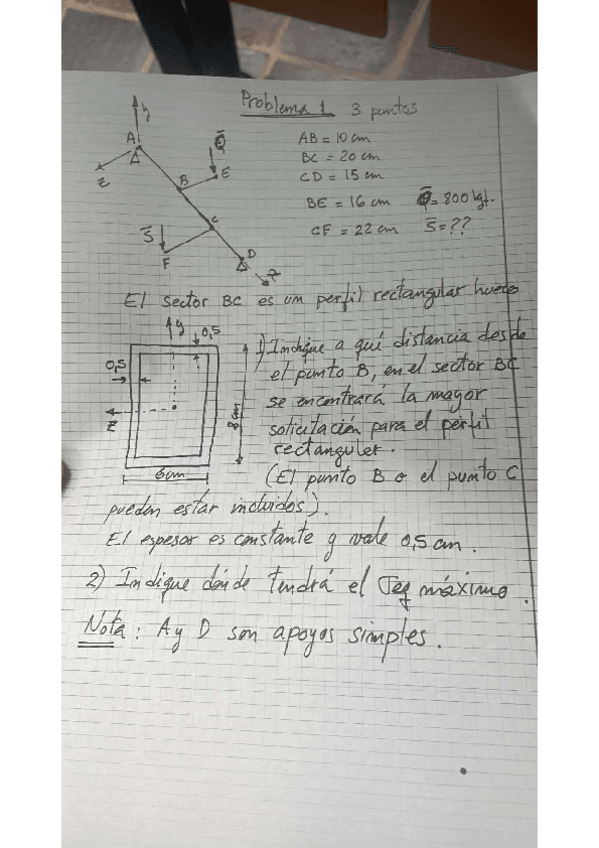 Problema 1 3 puntos
y
A
z
AB = 10 cm
BC = 20 cm
CD = 15 cm
BE = 16 cm Q̄ = 800 kgf.
CF = 22 cm S̄ = ??
Q̄
B
E
S̄
C
F
D
x
El sector BC es un perfil rectangular hueco
y
0,5
0,5
z
8 cm
6 cm
1) Indique a qué distancia desde
el punto B, en el sector BC
se encontrará la mayor
solicitación para el perfil
rectangular.
(El punto B o el punto C
pueden estar incluidos).
El espesor es constante y vale 0,5 cm.
2) Indique dónde tendrá el σeq máximo.
Nota: A y D son apoyos simples.